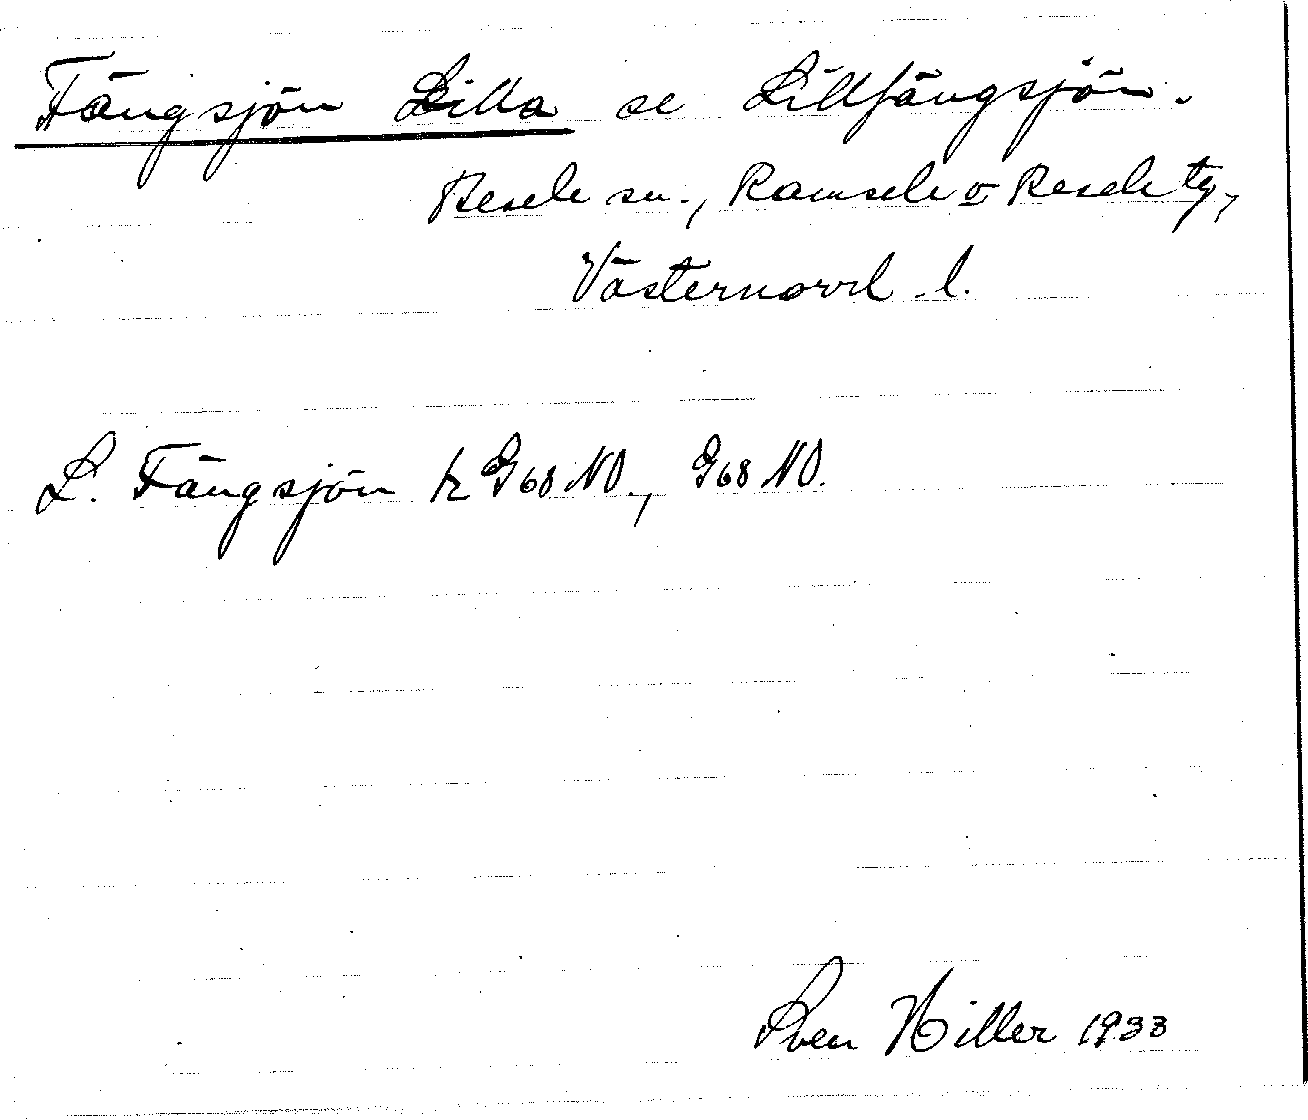 Fängsjön Lilla se Lillfängsjön.
Resele sn., Ramsele o Resele tg,
Västernorrl. l.
L. Fängsjön k G68 NO, G68 NO.
Sven Hiller 1933